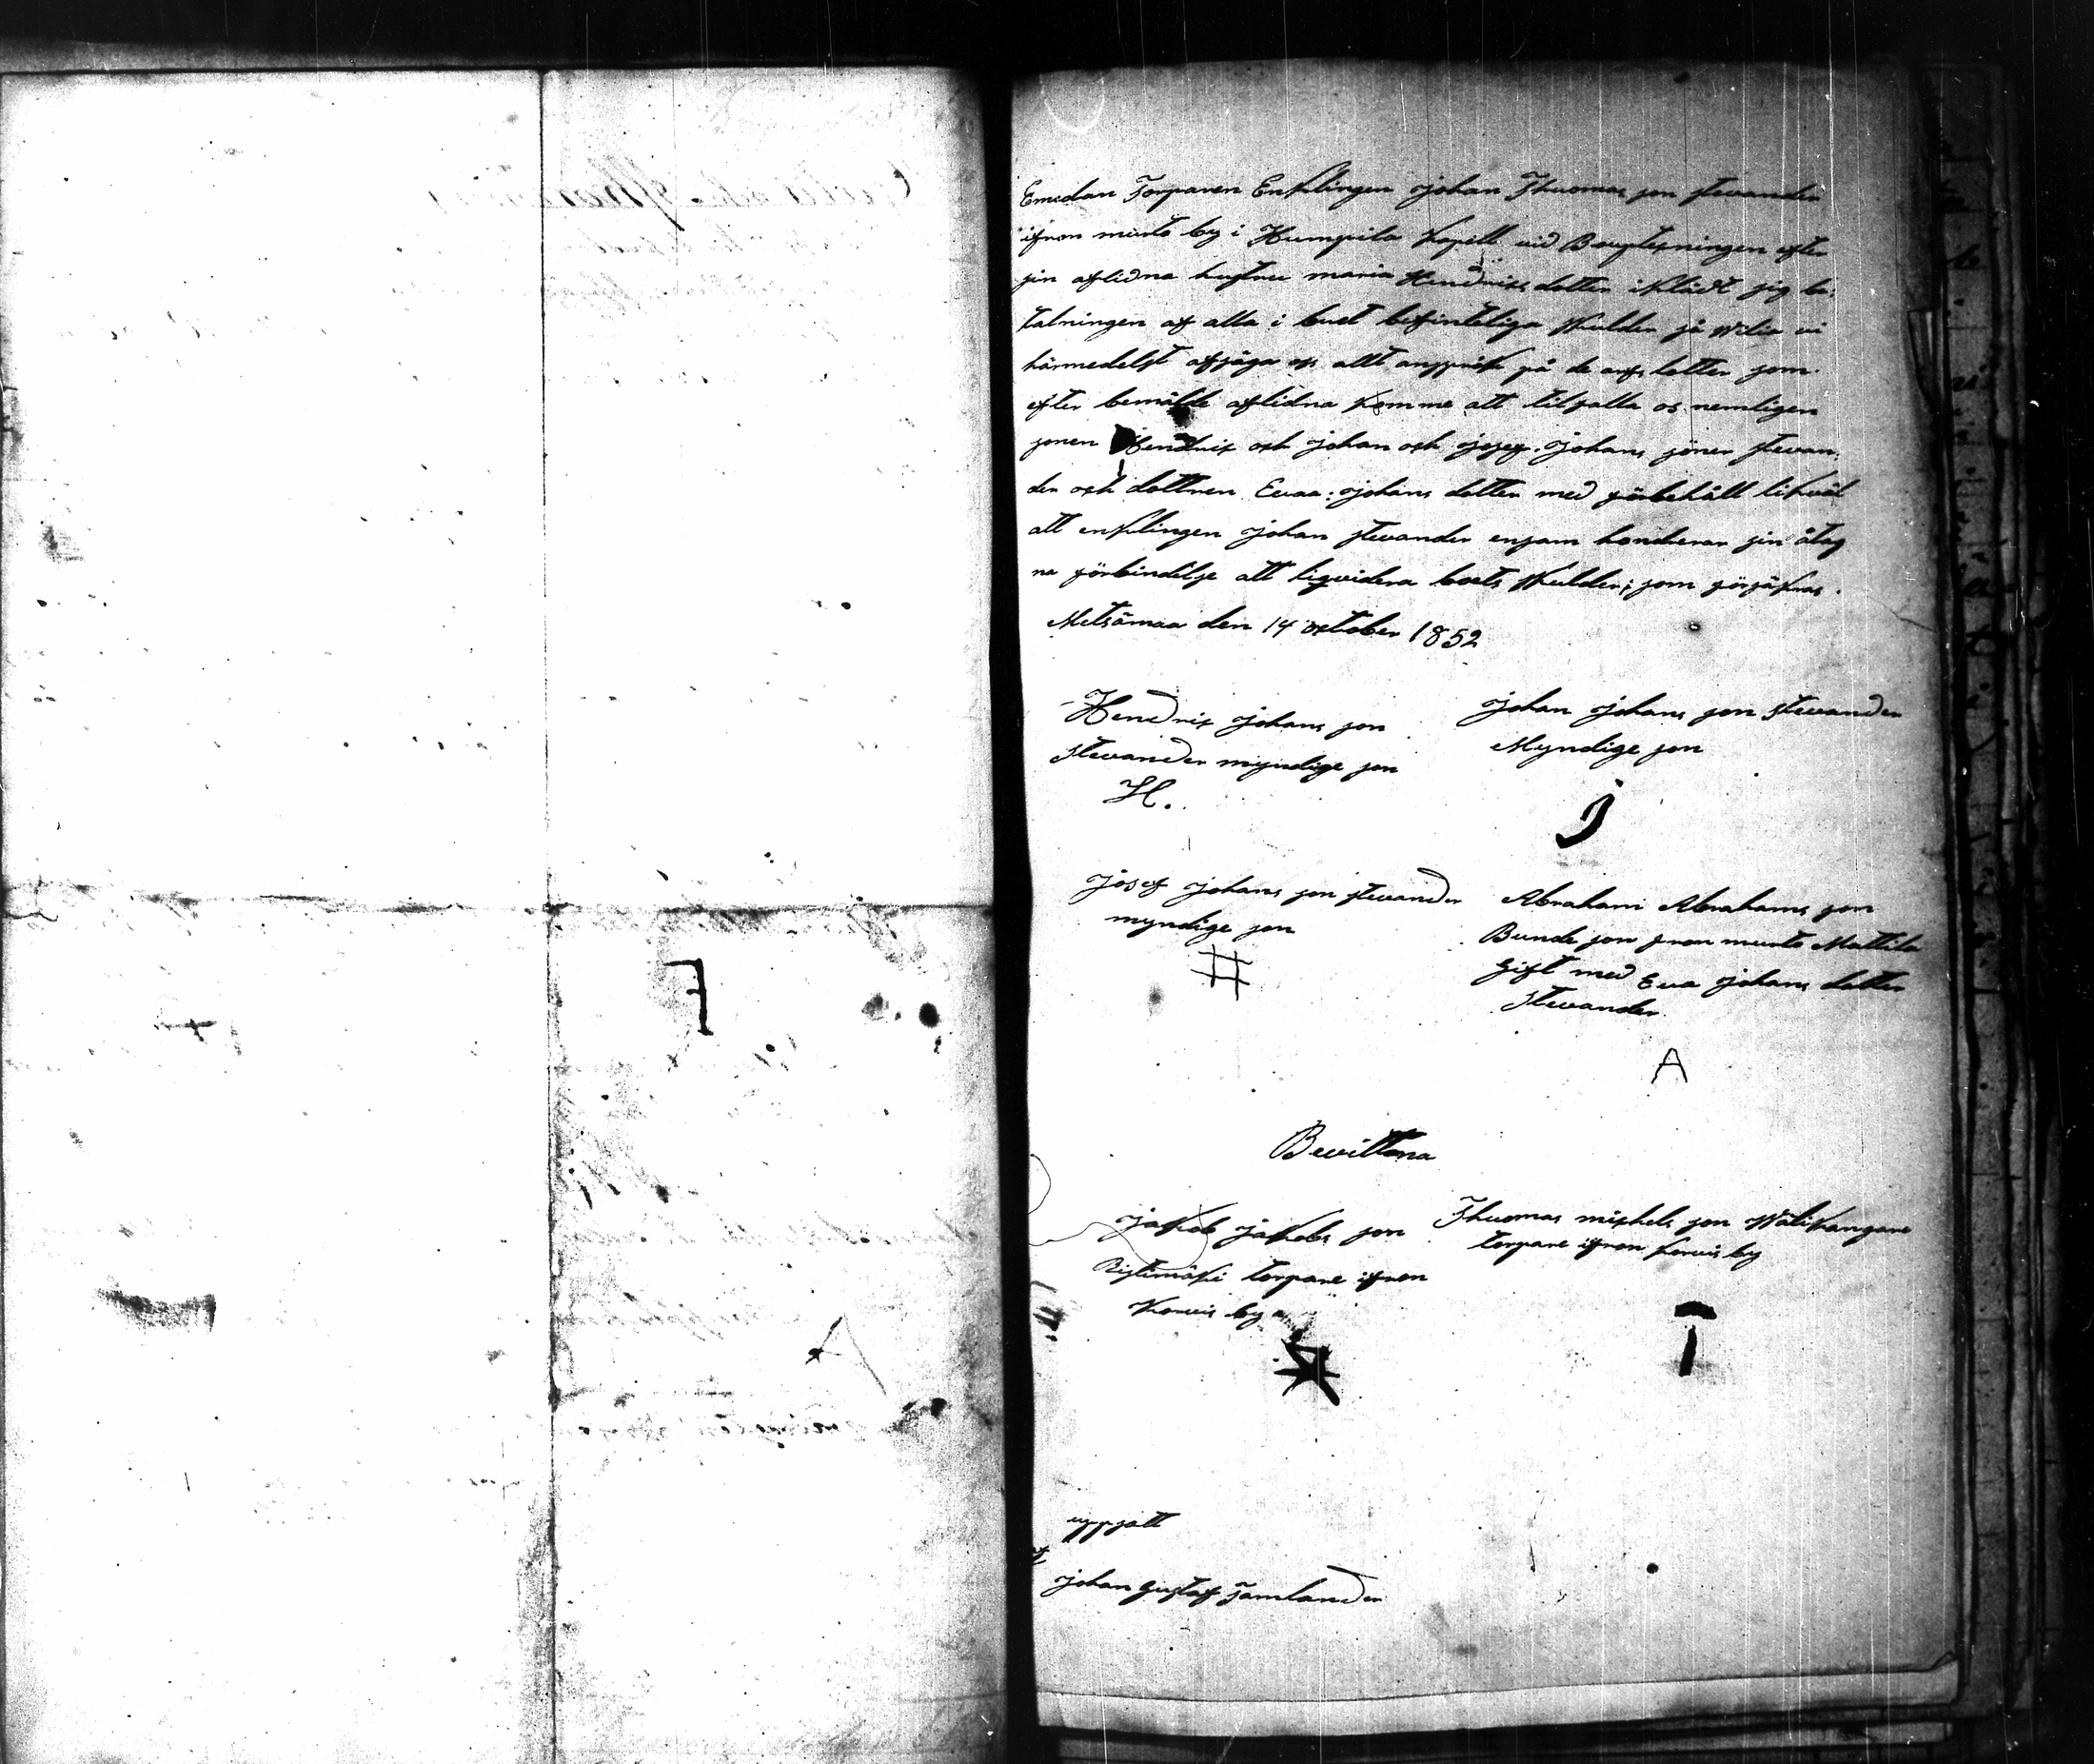 Emedan Torparen Enklingen Johan Thuomas son stevander
ifron murto by i Humpila Kapell vid Boupteckningen efter
sin aflidna hustru maria Hendrix dotter iklädt sig be-
talningen af alla i buet befinteliga skulder så vilia vi
härmedelst afsäga os allt anspråk på de arfs lotter som
efter bemälde aflidna komme att tilfalla os nemligen
sonen Hendrix och Johan och Josef Johans söner stevan-
der och dottren Evaa Johans dotter med förbehåll likväl
att enklingen Johan stevander ensam honderar sin åtag
na förbindelse att liqvidera boets skulder; som försäkras.
Metsämaa den 14 october 1852
Hendrix Johans son
stevander myndige son
H.
Johan Johans son stevander
Myndige son
J
Josef Johans son stevander
myndige son
Abraham Abrahams son
Bunde son fron murto Mattila
Gift med Eva Johans dotter
stevander
A
Bevittna
Jakob Jakobs son
Ristimäki torpare ifron
Korvis by
Thuomas mickels son Välikangare
torpare ifron korvis by
T
uppsatt
af
Johan Gustaf Tamlander
F